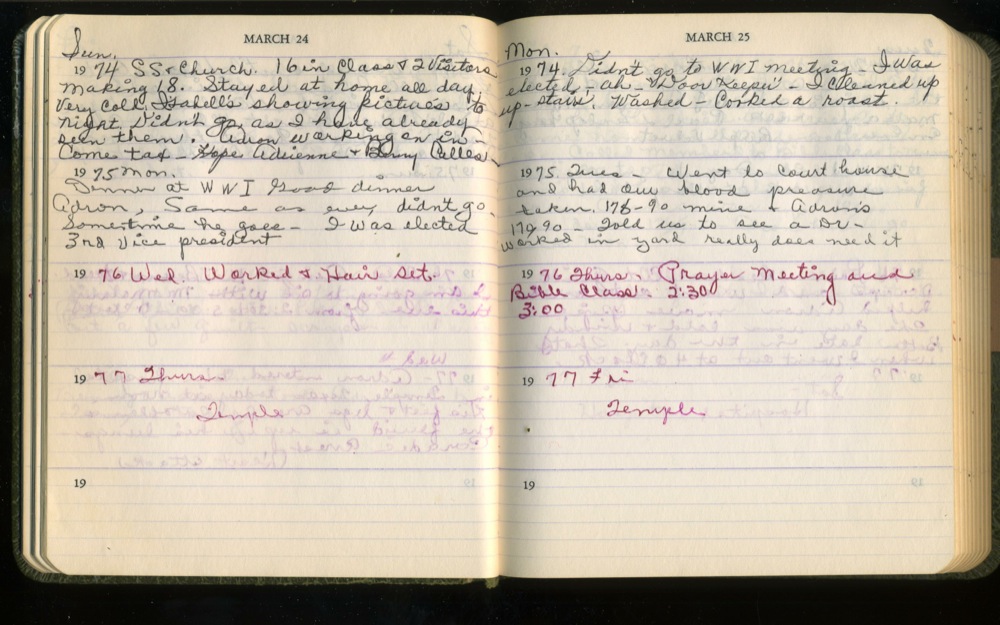 MARCH 24
Sun.
1974 SS & Church. 16 in Class & 2 Visitors
making 18. Stayed at home all day,
Very cold. Isabell's showing pictures to
night. Didn't go as I have already
seen them. Adron working on in-
come tax - Hope Adrienne & Benny Called.
1975 Mon.
Dinner at WWI Good dinner
Adron, Same as ever, didn't go.
Sometime he goes - I was elected
3rd Vice president
1976 Wed. Worked & Hair set.
1977 Thurs
Temple
19
MARCH 25
Mon.
1974. Didn't go to WWI meeting - I was
elected - ah - "Door Keeper" - I cleaned up
up-stairs. Washed - Cooked a roast.
1975. Tues - Went to Court house
and had our blood preasure
taken. 178-90 mine & Adron's
170 90 - Told us to see a Dr -
Worked in yard really does need it
1976 Thurs - Prayer Meeting and
Bible Class. 2:30
3:00
1977 Fri
Temple
19